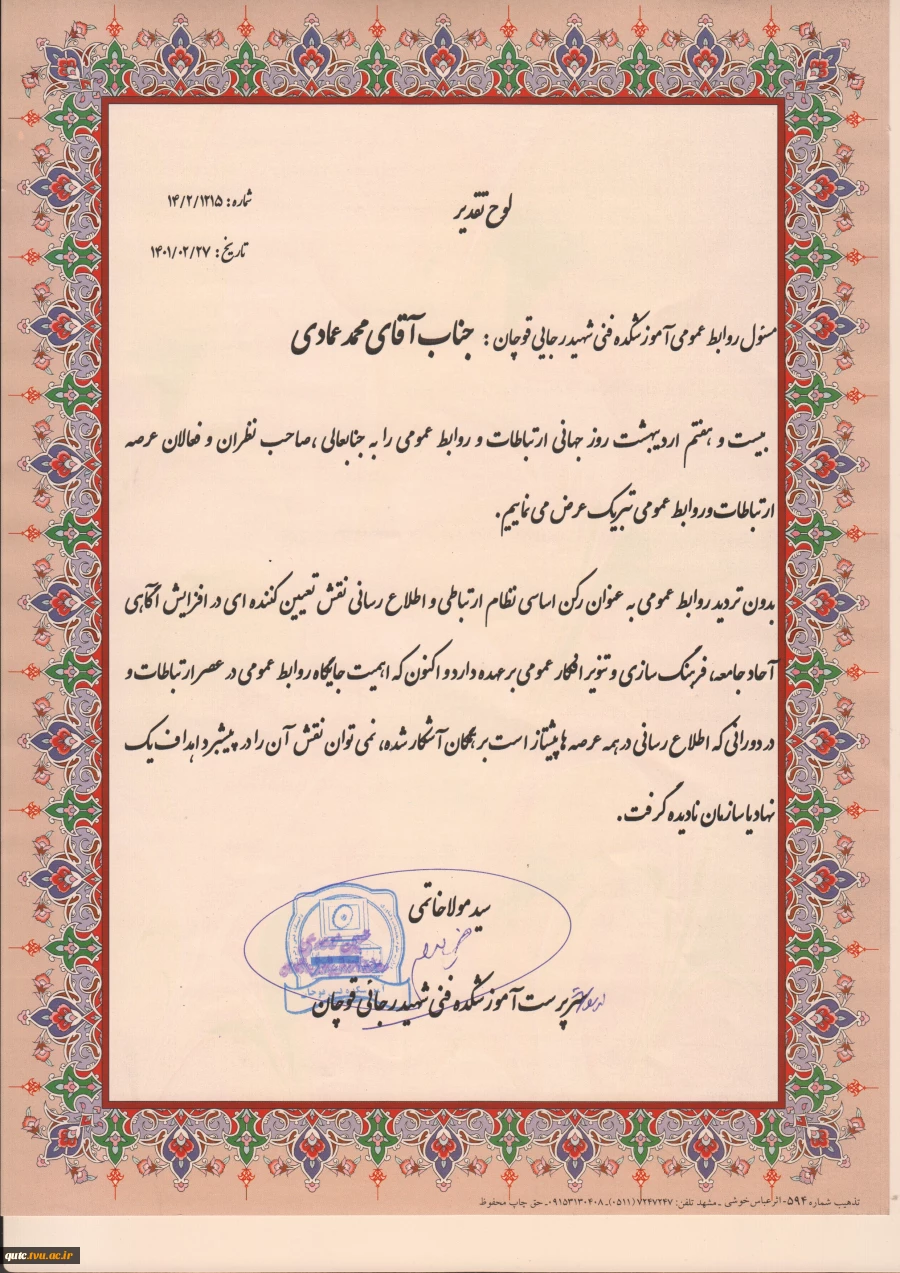 لوح تقدیر
شماره: ۱۴/۲/۱۲۱۵
تاریخ: ۱۴۰۱/۰۲/۲۷
مسئول روابط عمومی آموزشکده فنی شهید رجایی قوچان: جناب آقای محمد عمادی
بیست و هفتم اردیبهشت روز جهانی ارتباطات و روابط عمومی را به جنابعالی، صاحب نظران و فعالان عرصه
ارتباطات و روابط عمومی تبریک عرض می نماییم.
بدون تردید روابط عمومی به عنوان رکن اساسی نظام ارتباطی و اطلاع رسانی نقش تعیین کننده ای در افزایش آگاهی
آحاد جامعه، فرهنگ سازی و تنویر افکار عمومی بر عهده دارد و اکنون که اهمیت جایگاه روابط عمومی در عصر ارتباطات و
در دورانی که اطلاع رسانی در همه عرصه ها پیشتاز است بر همگان آشکار شده، نمی توان نقش آن را در پیشبرد اهداف یک
نهاد یا سازمان نادیده گرفت.
سید مولا خاتمی
سرپرست آموزشکده فنی شهید رجائی قوچان
تذهیب شماره ۵۹۴- اثر عباس خوشی - مشهد تلفن: ۷۲۴۷۲۴۷ (۰۵۱۱)- ۰۹۱۵۳۱۳۰۴۰۸- حق چاپ محفوظ
qutc.tvu.ac.ir